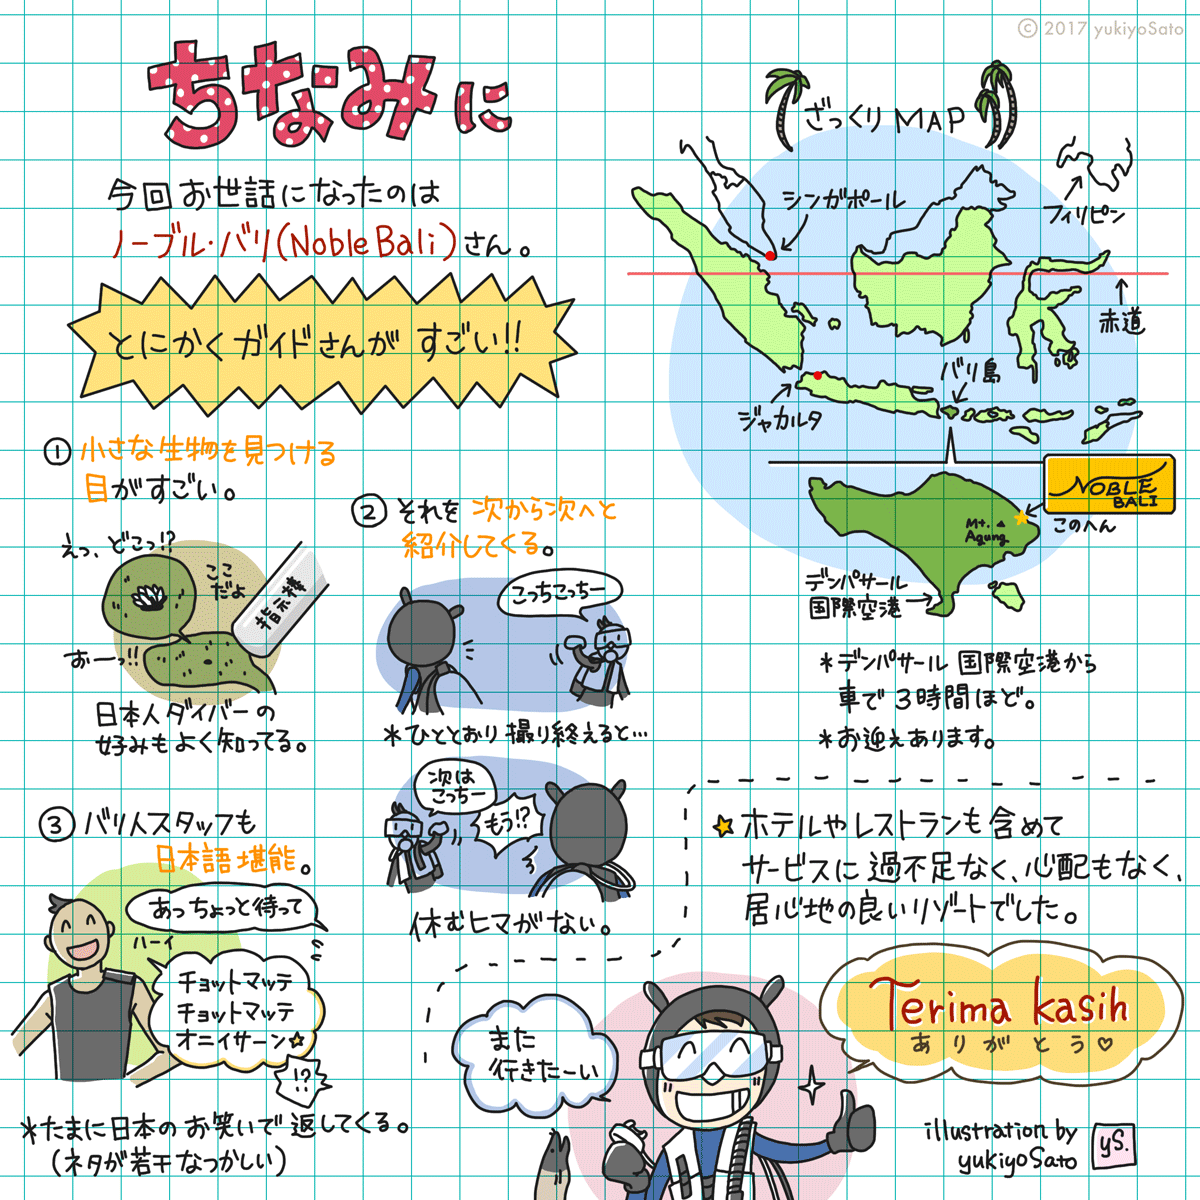 © 2017 yukiyoSato
ちなみに
今回お世話になったのは
ノーブル・バリ(Noble Bali)さん。
とにかくガイドさんがすごい!!
① 小さな生物を見つける
目がすごい。
えっ、どこっ!?
ここ
だよ
指示棒
おーっ!!
日本人ダイバーの
好みもよく知ってる。
② それを次から次へと
紹介してくる。
こっちこっちー
*ひととおり撮り終えると…
次は
こっちー
もう!?
休むヒマがない。
③ バリ人スタッフも
日本語堪能。
あっちょっと待って
ハーイ
チョットマッテ
チョットマッテ
オニイサーン☆
!?
*たまに日本のお笑いで返してくる。
(ネタが若干なつかしい)
ざっくりMAP
シンガポール
フィリピン
赤道
バリ島
ジャカルタ
NOBLE
BALI
Mt.
Agung
このへん
デンパサール
国際空港
*デンパサール国際空港から
車で3時間ほど。
*お迎えあります。
★ホテルやレストランも含めて
サービスに過不足なく、心配もなく、
居心地の良いリゾートでした。
Terima kasih
ありがとう♡
また
行きたーい
illustration by
yukiyoSato
yS.